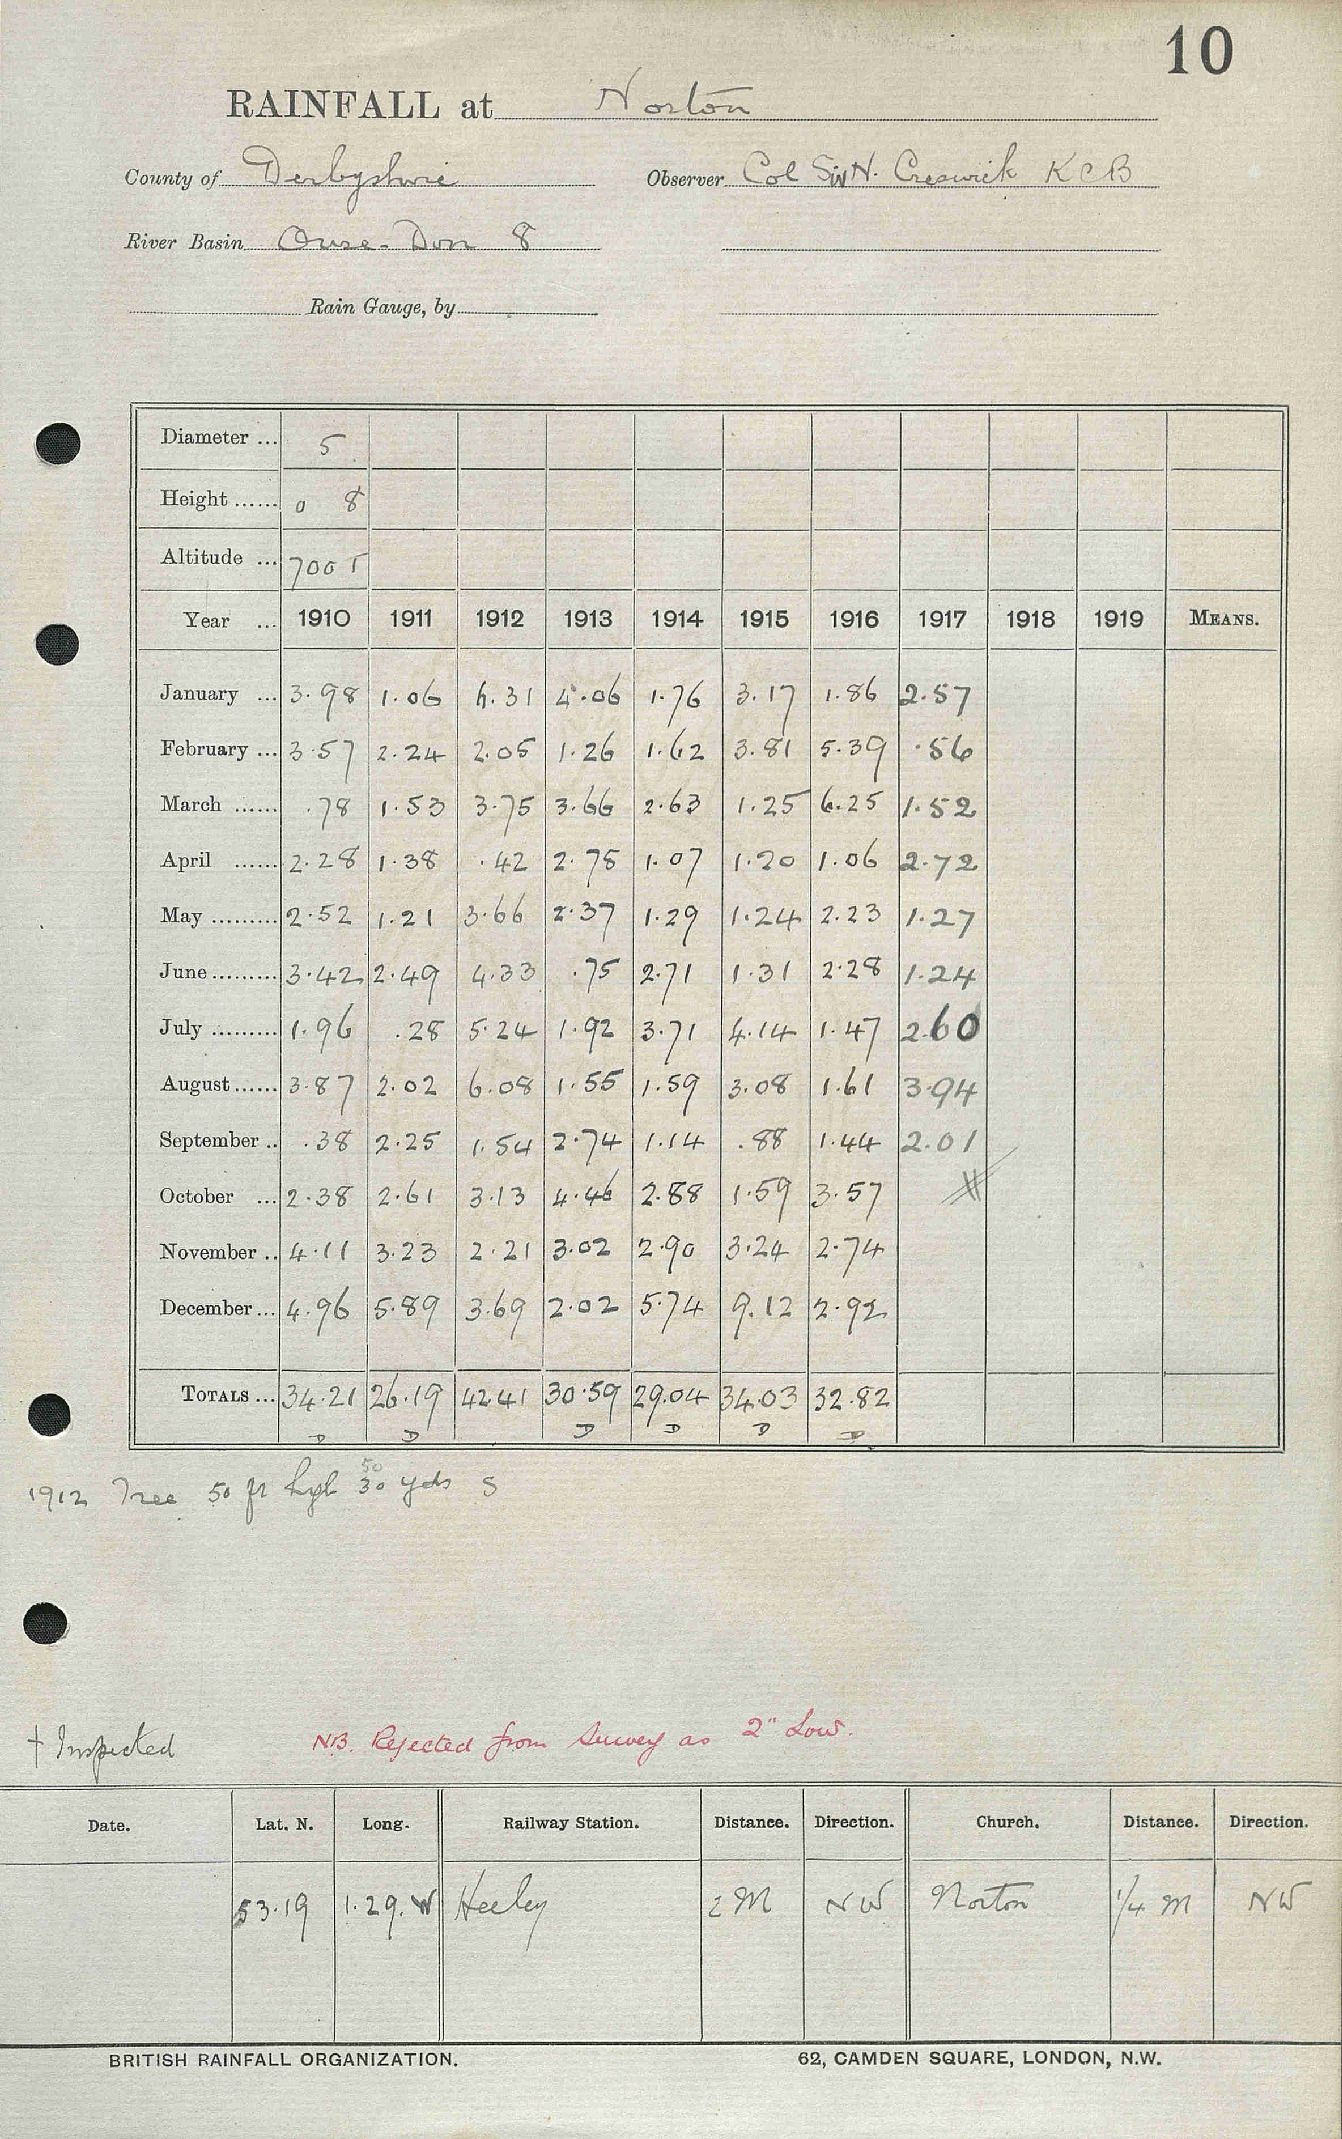 10
RAINFALL at Norton
County of Derbyshire Observer Col Sir H. Creswick K C B
River Basin Ouse-Don 8
Rain Gauge, by
Diameter ... 5
Height ...... 0 8
Altitude ... 700 T
Year ... 1910 1911 1912 1913 1914 1915 1916 1917 1918 1919 MEANS.
January ... 3.98 1.06 6.31 4.06 1.76 3.17 1.86 2.57
February ... 3.57 2.24 2.05 1.26 1.62 3.81 5.39 .56
March ...... .78 1.53 3.75 3.66 2.63 1.25 6.25 1.52
April ...... 2.28 1.38 .42 2.78 1.07 1.20 1.06 2.72
May ......... 2.52 1.21 3.66 2.37 1.29 1.24 2.23 1.27
June ......... 3.42 2.49 4.33 .75 2.71 1.31 2.28 1.24
July ......... 1.96 .28 5.24 1.92 3.71 4.14 1.47 2.60
August ...... 3.87 2.02 6.08 1.55 1.59 3.08 1.61 3.94
September .. .38 2.25 1.54 2.74 1.14 .88 1.44 2.01
October ... 2.38 2.61 3.13 4.46 2.88 1.59 3.57
November .. 4.11 3.23 2.21 3.02 2.90 3.24 2.74
December ... 4.96 5.89 3.69 2.02 5.74 9.12 2.92
TOTALS ... 34.21 26.19 42.41 30.59 29.04 34.03 32.82
D D D D D D
50
1912 Tree 50 ft high 30 yds S
† Inspected NB. Rejected from Survey as 2" Low.
Date. Lat. N. Long. Railway Station. Distance. Direction. Church. Distance. Direction.
53.19 1.29.W Heeley 2 M NW Norton 1/4 M NW
BRITISH RAINFALL ORGANIZATION. 62, CAMDEN SQUARE, LONDON, N.W.